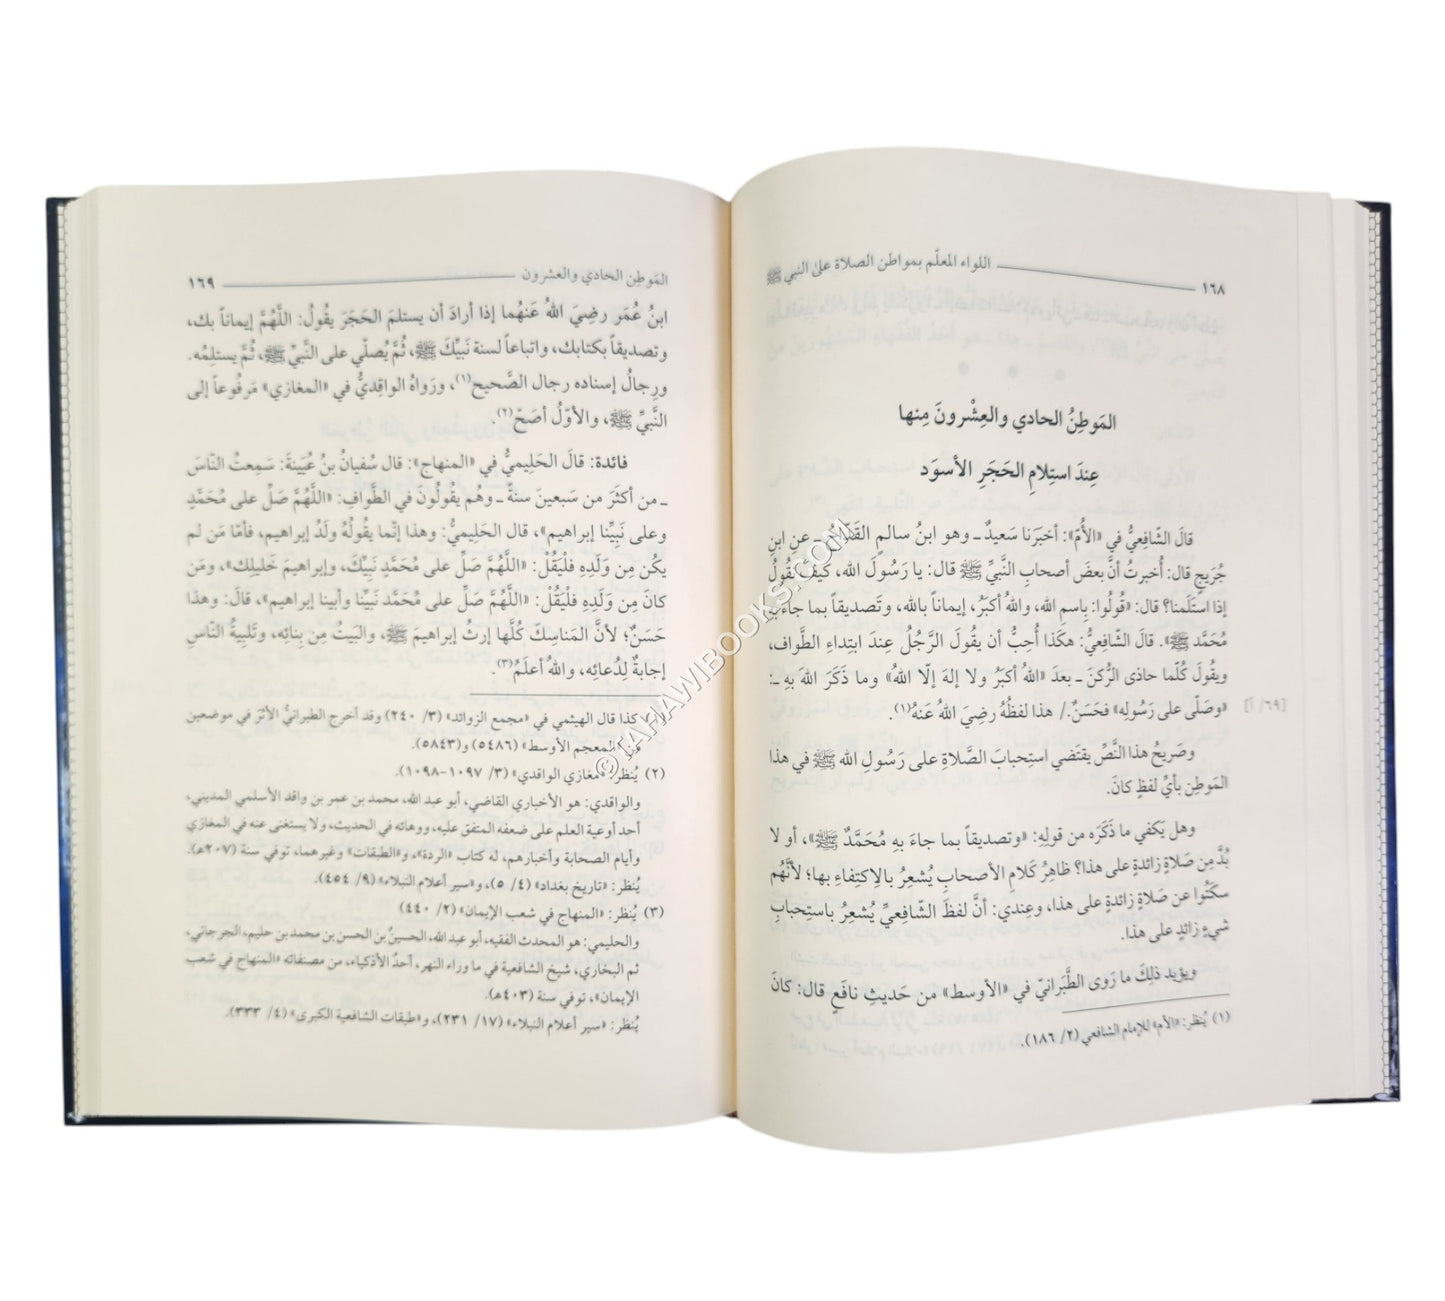 اللواء المعلّم بمواطن الصلاة على النبي ﷺ ١٦٨
المَوطِنُ الحادي والعِشْرونَ مِنها
عِندَ استِلامِ الحَجَرِ الأسوَد
قالَ الشّافِعيُّ في «الأُمّ»: أخبَرَنا سَعيدٌ ـ وهو ابنُ سالمٍ القَدّاحُ ـ عنِ ابنِ
جُرَيجٍ قال: أُخبِرتُ أنَّ بعضَ أصحابِ النَّبيِّ ﷺ قال: يا رَسُولَ الله، كيفَ نَقُولُ
إذا استَلَمنا؟ قال: «قُولُوا: بِاسمِ الله، واللهُ أكبَرُ، إيماناً بالله، وتَصديقاً بما جاءَ به
مُحَمَّد ﷺ». قالَ الشّافِعيُّ: هكَذا أُحِبُّ أن يقُولَ الرَّجُلُ عِندَ ابتِداءِ الطَّواف،
ويقُولَ كُلّما حاذى الرُّكنَ ـ بعدَ «اللهُ أكبَرُ ولا إلهَ إلّا اللهُ» وما ذَكَرَ اللهَ بِهِ ـ:
«وصَلّى على رَسُولِه» فحَسَنٌ./ هذا لفظُهُ رضِيَ اللهُ عَنهُ(١). [٦٩/ أ]
وصَريحُ هذا النَّصِّ يقتَضي استِحبابَ الصَّلاةِ على رَسُولِ الله ﷺ في هذا
المَوطِنِ بأيِّ لفظٍ كانَ.
وهل يَكفي ما ذَكَرَه من قولِهِ: «وتصديقاً بما جاءَ بِهِ مُحَمَّدٌ ﷺ»، أو لا
بُدَّ مِن صَلاةٍ زائدةٍ على هذا؟ ظاهِرُ كَلامِ الأصحابِ يُشعِرُ بالِاكتِفاءِ بها؛ لأنَّهُم
سكَتُوا عن صَلاةٍ زائدةٍ على هذا، وعِندي: أنَّ لفظَ الشّافِعيِّ يُشعِرُ باستِحبابِ
شيءٍ زائدٍ على هذا.
ويؤيد ذلِكَ ما رَوى الطَّبَرانيّ في «الأوسط» من حَديثِ نافَعٍ قال: كانَ
(١) يُنظر: «الأم» للإمام الشافعي (٢/ ١٨٦).
المَوطِن الحادي والعشرون ١٦٩
ابنُ عُمَر رضِيَ اللهُ عَنهُما إذا أرادَ أن يستلمَ الحَجَرَ يقُولُ: اللَّهُمَّ إيماناً بك،
وتصديقاً بكتابك، واتباعاً لسنة نَبيِّكَ ﷺ، ثُمَّ يُصلّي على النَّبيِّ ﷺ، ثُمَّ يستلِمُه.
ورِجالُ إسناده رجال الصَّحيح(١)، ورَواهُ الواقِديُّ في «المغازي» مَرفُوعاً إلى
النَّبيِّ ﷺ، والأوّلُ أصَحّ(٢).
فائدة: قالَ الحَلِيميُّ في «المنهاج»: قال سُفيانُ بنُ عُيَينةَ: سَمِعتُ النّاسَ
ـ من أكثَرَ من سَبعينَ سنةً ـ وهُم يقُولُونَ في الطَّوافِ: «اللَّهُمَّ صَلِّ على مُحَمَّدٍ
وعلى نَبيِّنا إبراهيم»، قال الحَليميُّ: وهذا إنّما يقُولُهُ ولَدُ إبراهيم، فأمّا مَن لم
يكُن مِن وَلَدِه فلْيَقُلْ: «اللَّهُمَّ صَلِّ على مُحَمَّدٍ نَبيِّكَ، وإبراهيمَ خَليلِك»، ومَن
كانَ مِن وَلَدِه فلْيَقُلْ: «اللَّهُمَّ صَلِّ على مُحَمَّد نَبيِّنا وأبينا إبراهيم»، قال: وهذا
حَسَنٌ؛ لأنَّ المَناسِكَ كُلَّها إرثُ إبراهيمَ ﷺ، والبَيتُ مِن بِنائِه، وتَلبِيةُ النّاسِ
إجابةٌ لِدُعائِه، واللهُ أعلَمُ(٣).
(١) كذا قال الهيثمي في «مجمع الزوائد» (٣/ ٢٤٠) وقد أخرج الطبرانيُّ الأثرَ في موضعين
من «المعجم الأوسط» (٥٤٨٦) و(٥٨٤٣).
(٢) يُنظر: «مغازي الواقدي» (٣/ ١٠٩٧-١٠٩٨).
والواقدي: هو الأخباري القاضي، أبو عبد الله، محمد بن عمر بن واقد الأسلمي المديني،
أحد أوعية العلم على ضعفه المتفق عليه، ووهائه في الحديث، ولا يستغنى عنه في المغازي
وأيام الصحابة وأخبارهم، له كتاب «الردة»، و«الطبقات» وغيرهما، توفي سنة (٢٠٧هـ).
يُنظر: «تاريخ بغداد» (٤/ ٥)، و«سير أعلام النبلاء» (٩/ ٤٥٤).
(٣) يُنظر: «المنهاج في شعب الإيمان» (٢/ ٤٤٠)
والحليمي: هو المحدث الفقيه، أبو عبد الله، الحسينُ بن الحسن بن محمد بن حليم، الجرجاني،
ثم البخاري، شيخ الشافعية في ما وراء النهر، أحدُ الأذكياء، من مصنفاته «المنهاج في شعب
الإيمان»، توفي سنة (٤٠٣هـ).
يُنظر: «سير أعلام النبلاء» (١٧/ ٢٣١)، و«طبقات الشافعية الكبرى» (٤/ ٣٣٣).
© TAHAWIBOOKS.COM